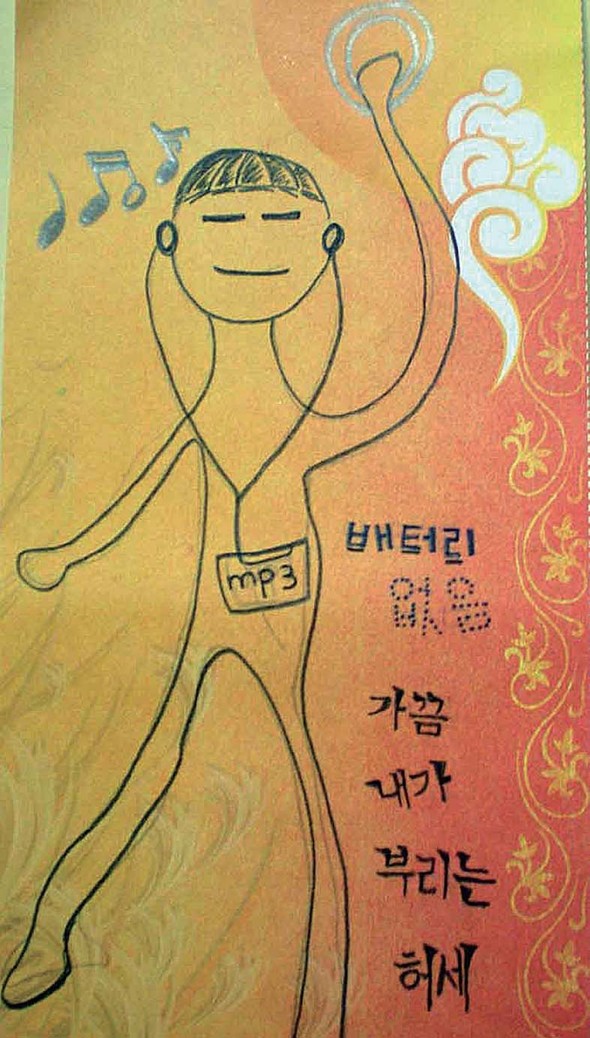 mp3
배터리
없음
가끔
내가
부리는
허세